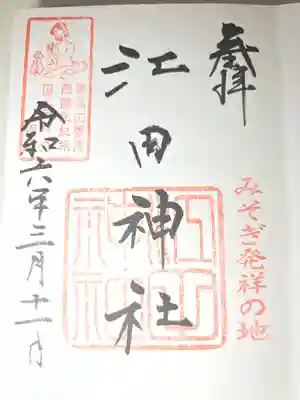 奉拝
みそぎ発祥の地
江田神社
令和六年三月十一日